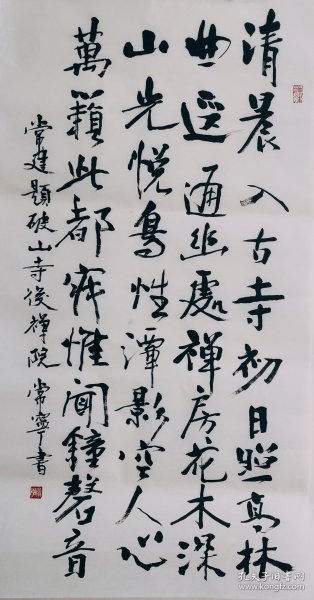 清晨入古寺初日照高林
曲迳通幽處禅房花木深
山光悦鳥性潭影空人心
萬籟此都寂惟聞鐘磬音
常建題破山寺後禅院 常寧書